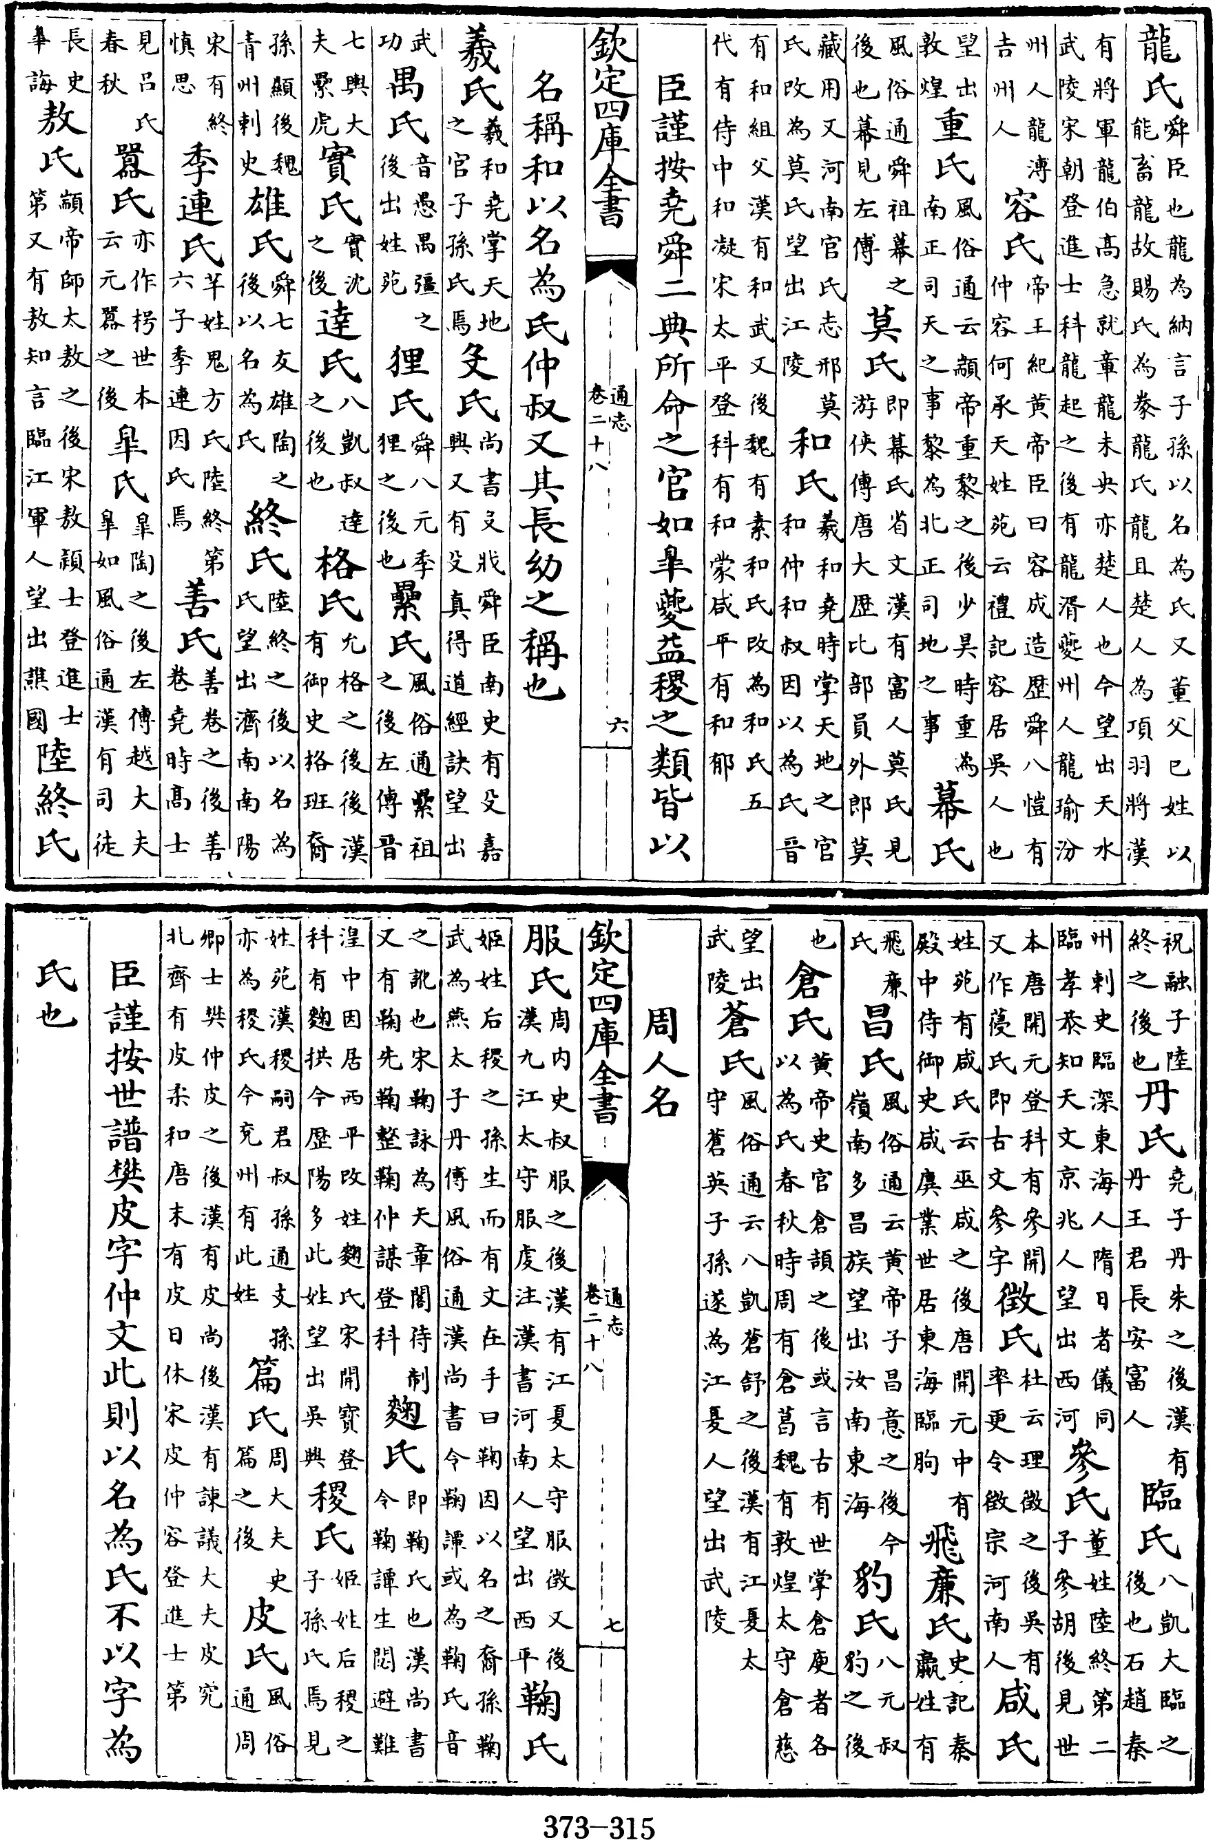 龍氏舜臣也龍為納言子孫以名為氏又董父已姓以能畜龍故賜氏為豢龍氏龍且楚人為項羽將漢
有將軍龍伯高急就章龍未央亦楚人也今望出天水武陵宋朝登進士科龍起之後有龍滑夔州人龍瑜汾
州人龍溥吉州人容氏帝王紀黃帝臣曰容成造歴舜八愷有仲容何承天姓苑云禮記容居吳人也
望出敦煌重氏風俗通云顓帝重黎之後少昊時重為南正司天之事黎為北正司地之事幕氏
風俗通舜祖幕之後也幕見左傳莫氏即幕氏省文漢有富人莫氏見游俠傳唐大歴比部員外郎莫
藏用又河南官氏志邢莫氏改為莫氏望出江陵和氏羲和堯時掌天地之官和仲和叔因以為氏晉
有和組父漢有和武又後魏有素和氏改為和氏五代有侍中和凝宋太平登科有和蒙咸平有和郁
臣謹按堯舜二典所命之官如臯夔益稷之類皆以
欽定四庫全書 通志卷二十八 六
名稱和以名為氏仲叔又其長幼之稱也
羲氏羲和堯掌天地之官子孫氏焉殳氏尚書殳戕舜臣南史有殳嘉興又有殳真得道經訣望出
武功禺氏音愚禺彊之後出姓苑狸氏舜八元季狸之後也纍氏風俗通纍祖之後左傳晉
七輿大夫纍虎實氏實沈之後達氏八凱叔達之後也格氏允格之後後漢有御史格班裔
孫顯後魏青州刺史雄氏舜七友雄陶之後以名為氏終氏陸終之後以名為氏望出濟南南陽
宋有終慎思季連氏芊姓鬼方氏陸終第六子季連因氏焉善氏善卷之後善卷堯時髙士
見呂氏春秋囂氏亦作枵世本云元囂之後臯氏臯陶之後左傳越大夫臯如風俗通漢有司徒
長史臯誨敖氏顓帝師太敖之後宋敖頴士登進士第又有敖知言臨江軍人望出譙國陸終氏
祝融子陸終之後也丹氏堯子丹朱之後漢有丹王君長安富人臨氏八凱大臨之後也石趙秦
州刺史臨深東海人隋日者儀同臨孝恭知天文京兆人望出西河參氏董姓陸終第二子參胡後見世
本唐開元登科有參開又作蓡氏即古文參字徴氏杜云理徴之後吳有率更令徴宗河南人咸氏
姓苑有咸氏云巫咸之後唐開元中有殿中侍御史咸廙業世居東海臨朐飛廉氏史記秦嬴姓有
飛廉氏昌氏風俗通云黃帝子昌意之後今嶺南多昌族望出汝南東海豹氏八元叔豹之後
也倉氏黃帝史官倉頡之後或言古有世掌倉庾者各以為氏春秋時周有倉葛魏有敦煌太守倉慈
望出武陵蒼氏風俗通云八凱蒼舒之後漢有江夏太守蒼英子孫遂為江夏人望出武陵
周人名
欽定四庫全書 通志卷二十八 七
服氏周内史叔服之後漢有江夏太守服徴又後漢九江太守服虔注漢書河南人望出西平鞠氏
姬姓后稷之孫生而有文在手曰鞠因以名之裔孫鞠武為燕太子丹傅風俗通漢尚書令鞠譚或為鞠氏音
之訛也宋鞠詠為天章閣待制又有鞠先鞠整鞠仲謀登科麴氏即鞠氏也漢尚書令鞠譚生閟避難
湟中因居西平改姓麴氏宋開寶登科有麴拱今歴陽多此姓望出吳興稷氏姬姓后稷之子孫氏焉見
姓苑漢稷嗣君叔孫通支孫亦為稷氏今兖州有此姓篇氏周大夫史篇之後皮氏風俗通周
卿士樊仲皮之後漢有皮尚後漢有諫議大夫皮究北齊有皮柔和唐末有皮日休宋皮仲容登進士第
臣謹按世譜樊皮字仲文此則以名為氏不以字為
氏也
373-315